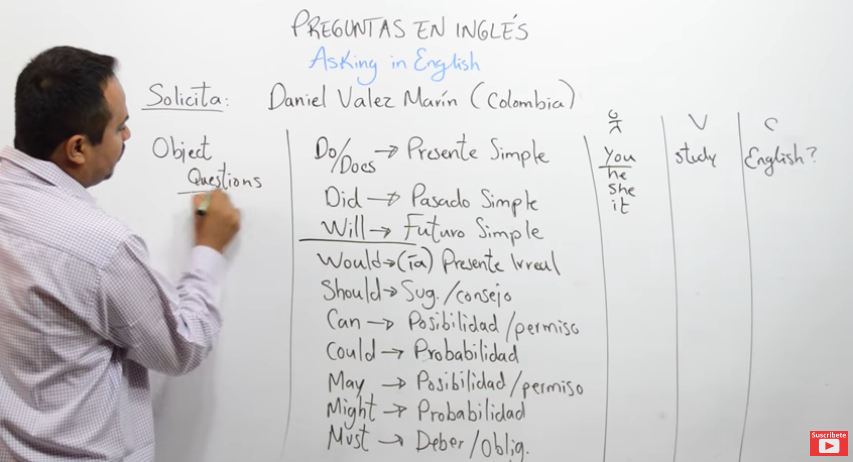 PREGUNTAS EN INGLÉS
Asking in English
Solicita: Daniel Valez Marín (Colombia)
Object
Questions
Do/Does → Presente Simple
Did → Pasado Simple
Will → Futuro Simple
Would → (ía) Presente Irreal
Should → Sug./consejo
Can → Posibilidad/permiso
Could → Probabilidad
May → Posibilidad/permiso
Might → Probabilidad
Must → Deber/Oblig.
You
he
she
it
V
study
C
English?
Suscríbete